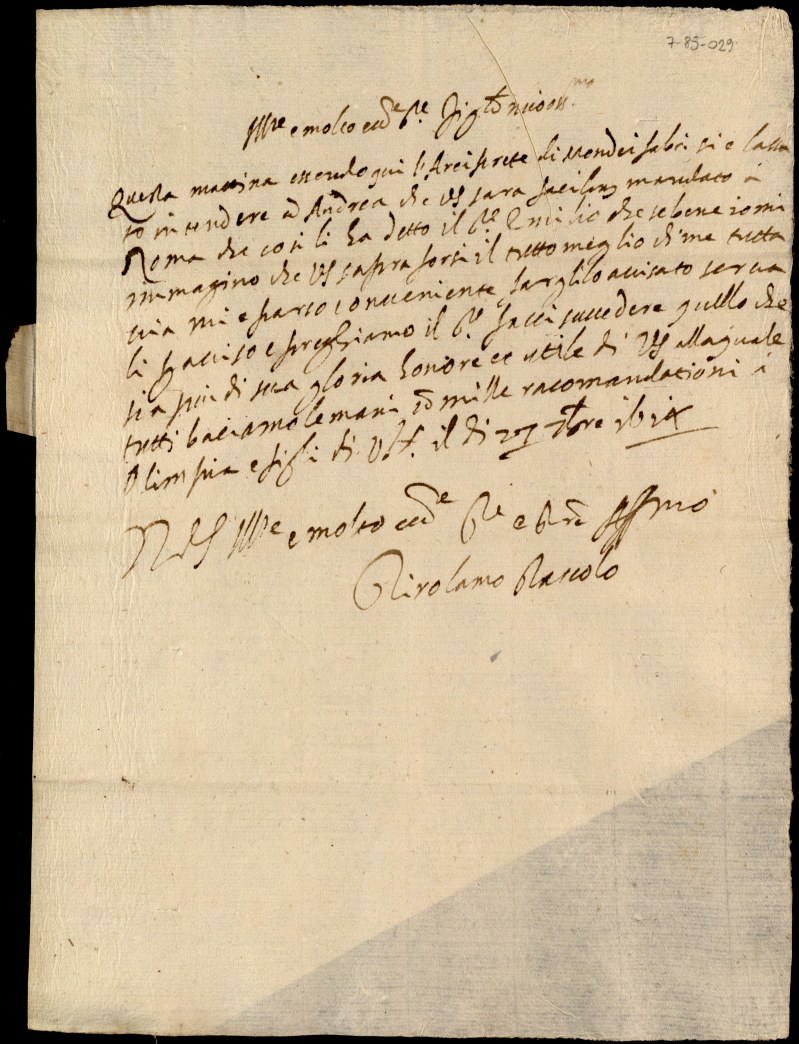 7-85-029
Ill.re e molto ecc.te Sig.r mio oss.mo
Questa mattina essendo qui l'Arciprete di si e lassa
to intendere ad Andrea che VS sara facilm mandato à
Roma che cosi li ha detto il S.r Emilio che sebene io mi
immagino che VS sapra forsi il tutto meglio di me tutta
via mi e parso conveniente farglilo avisato serva
li p aviso e preghiamo il S.r facci succedere quello che
sia piu di sua gloria honore et utile di VS alla quale
tutti baciamo le mani cō mille racomandationi à
Olimpia e figli di VS. il di 27 7bre
Di VS Ill.re e molto ecc.te
Girolamo